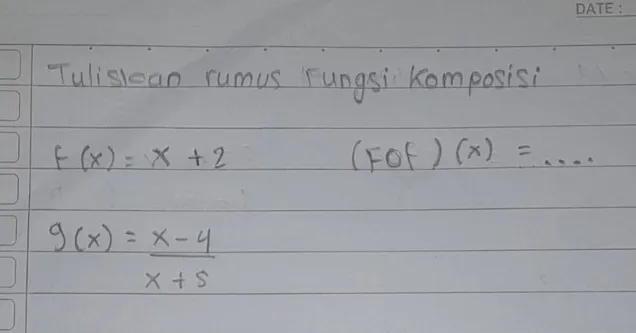 DATE :
Tuliskan rumus fungsi komposisi
f(x) = x + 2 (fof)(x) = ....
g(x) = x - 4
x + 5